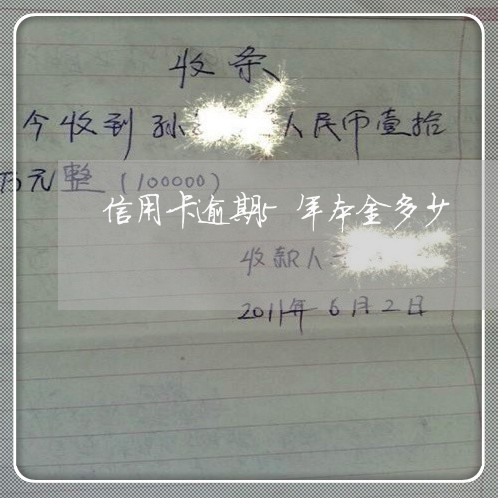 收条
今收到孙 人民币壹拾
万元整（100000）
信用卡逾期5年本金多少
收款人
2011年6月2日